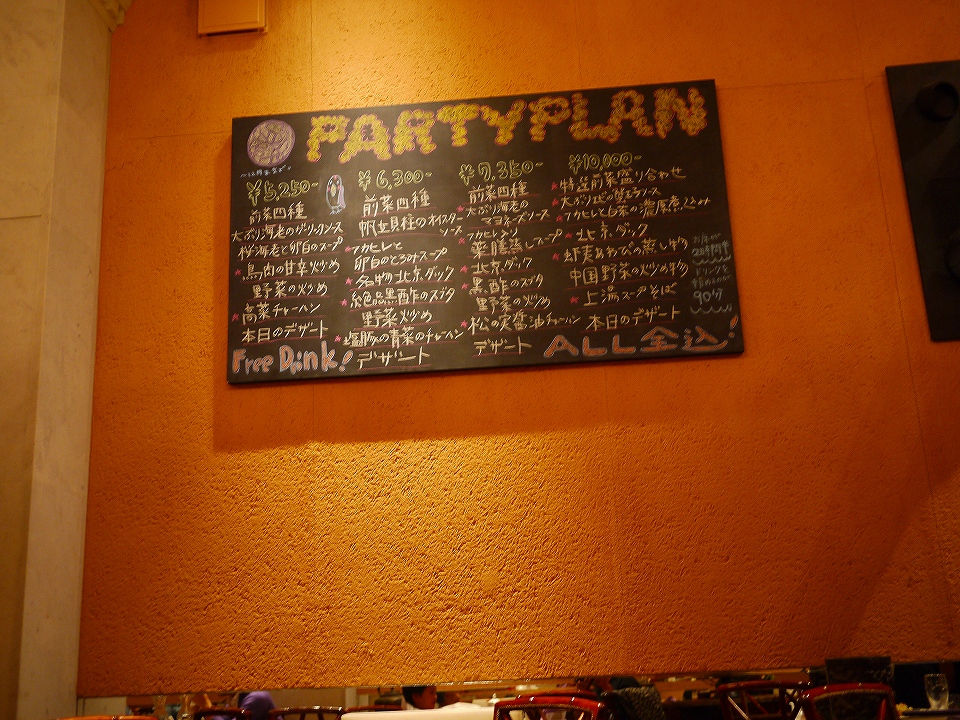 PARTY PLAN
¥5,250-
前菜四種
大ぶり海老のガーリックソース
桜海老と卵白のスープ
★鳥肉の甘辛炒め
野菜の炒め
★高菜チャーハン
本日のデザート
¥6,300-
前菜四種
帆立貝柱のオイスター
ソース
★フカヒレと
卵白のとろみスープ
★名物北京ダック
★絶品黒酢のスブタ
野菜炒め
★塩豚の青菜のチャーハン
デザート
¥7,350-
前菜四種
★大ぶり海老の
マヨネーズソース
★フカヒレ入り
薬膳蒸しスープ
★北京ダック
★黒酢のスブタ
野菜の炒め
★松の実醤油チャーハン
デザート
¥10,000-
★特選前菜盛り合わせ
★フカヒレと白菜の濃厚煮込み
★北京ダック
★蝦夷あわびの蒸し物
中国野菜の炒め物
★上湯スープそば
本日のデザート
お席が
2時間制
ドリンクを
90分
Free Drink!
ALL 全込!